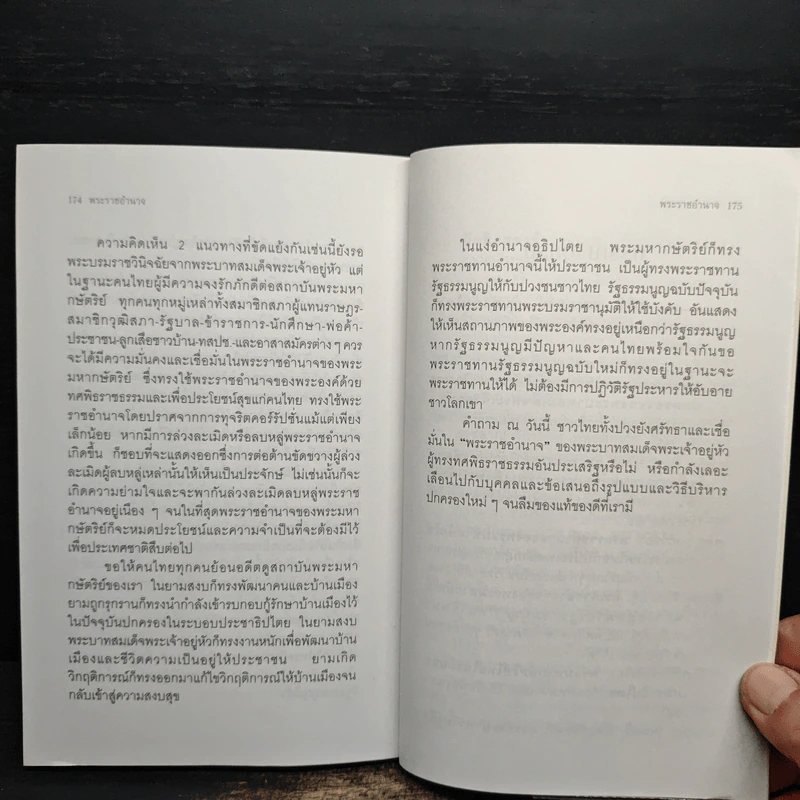 174 พระราชอำนาจ
ความคิดเห็น 2 แนวทางที่ขัดแย้งกันเช่นนี้ยังรอ
พระบรมราชวินิจฉัยจากพระบาทสมเด็จพระเจ้าอยู่หัว แต่
ในฐานะคนไทยผู้มีความจงรักภักดีต่อสถาบันพระมหา
กษัตริย์ ทุกคนทุกหมู่เหล่าทั้งสมาชิกสภาผู้แทนราษฎร-
สมาชิกวุฒิสภา-รัฐบาล-ข้าราชการ-นักศึกษา-พ่อค้า-
ประชาชน-ลูกเสือชาวบ้าน-ทสปช.-และอาสาสมัครต่าง ๆ ควร
จะได้มีความมั่นคงและเชื่อมั่นในพระราชอำนาจของพระ
มหากษัตริย์ ซึ่งทรงใช้พระราชอำนาจของพระองค์ด้วย
ทศพิธราชธรรมและเพื่อประโยชน์สุขแก่คนไทย ทรงใช้พระ
ราชอำนาจโดยปราศจากการทุจริตคอร์รัปชั่นแม้แต่เพียง
เล็กน้อย หากมีการล่วงละเมิดหรือลบหลู่พระราชอำนาจ
เกิดขึ้น ก็ชอบที่จะแสดงออกซึ่งการต่อต้านขัดขวางผู้ล่วง
ละเมิดผู้ลบหลู่เหล่านั้นให้เห็นเป็นประจักษ์ ไม่เช่นนั้นก็จะ
เกิดความย่ามใจและจะพากันล่วงละเมิดลบหลู่พระราช
อำนาจอยู่เนือง ๆ จนในที่สุดพระราชอำนาจของพระมหา
กษัตริย์ก็จะหมดประโยชน์และความจำเป็นที่จะต้องมีไว้
เพื่อประเทศชาติสืบต่อไป
ขอให้คนไทยทุกคนย้อนอดีตดูสถาบันพระมหา
กษัตริย์ของเรา ในยามสงบก็ทรงพัฒนาคนและบ้านเมือง
ยามถูกรุกรานก็ทรงนำกำลังเข้ารบกอบกู้รักษาบ้านเมืองไว้
ในปัจจุบันปกครองในระบอบประชาธิปไตย ในยามสงบ
พระบาทสมเด็จพระเจ้าอยู่หัวก็ทรงงานหนักเพื่อพัฒนาบ้าน
เมืองและชีวิตความเป็นอยู่ให้ประชาชน ยามเกิด
วิกฤติการณ์ก็ทรงออกมาแก้ไขวิกฤติการณ์ให้บ้านเมืองจน
กลับเข้าสู่ความสงบสุข
พระราชอำนาจ 175
ในแง่อำนาจอธิปไตย พระมหากษัตริย์ก็ทรง
พระราชทานอำนาจนี้ให้ประชาชน เป็นผู้ทรงพระราชทาน
รัฐธรรมนูญให้กับปวงชนชาวไทย รัฐธรรมนูญฉบับปัจจุบัน
ก็ทรงพระราชทานพระบรมราชานุมัติให้ใช้บังคับ อันแสดง
ให้เห็นสถานภาพของพระองค์ทรงอยู่เหนือกว่ารัฐธรรมนูญ
หากรัฐธรรมนูญมีปัญหาและคนไทยพร้อมใจกันขอ
พระราชทานรัฐธรรมนูญฉบับใหม่ก็ทรงอยู่ในฐานะจะ
พระราชทานให้ได้ ไม่ต้องมีการปฏิวัติรัฐประหารให้อับอาย
ชาวโลกเขา
คำถาม ณ วันนี้ ชาวไทยทั้งปวงยังศรัทธาและเชื่อ
มั่นใน “พระราชอำนาจ” ของพระบาทสมเด็จพระเจ้าอยู่หัว
ผู้ทรงทศพิธราชธรรมอันประเสริฐหรือไม่ หรือกำลังเลอะ
เลือนไปกับบุคคลและข้อเสนอถึงรูปแบบและวิธีบริหาร
ปกครองใหม่ ๆ จนลืมของแท้ของดีที่เรามี